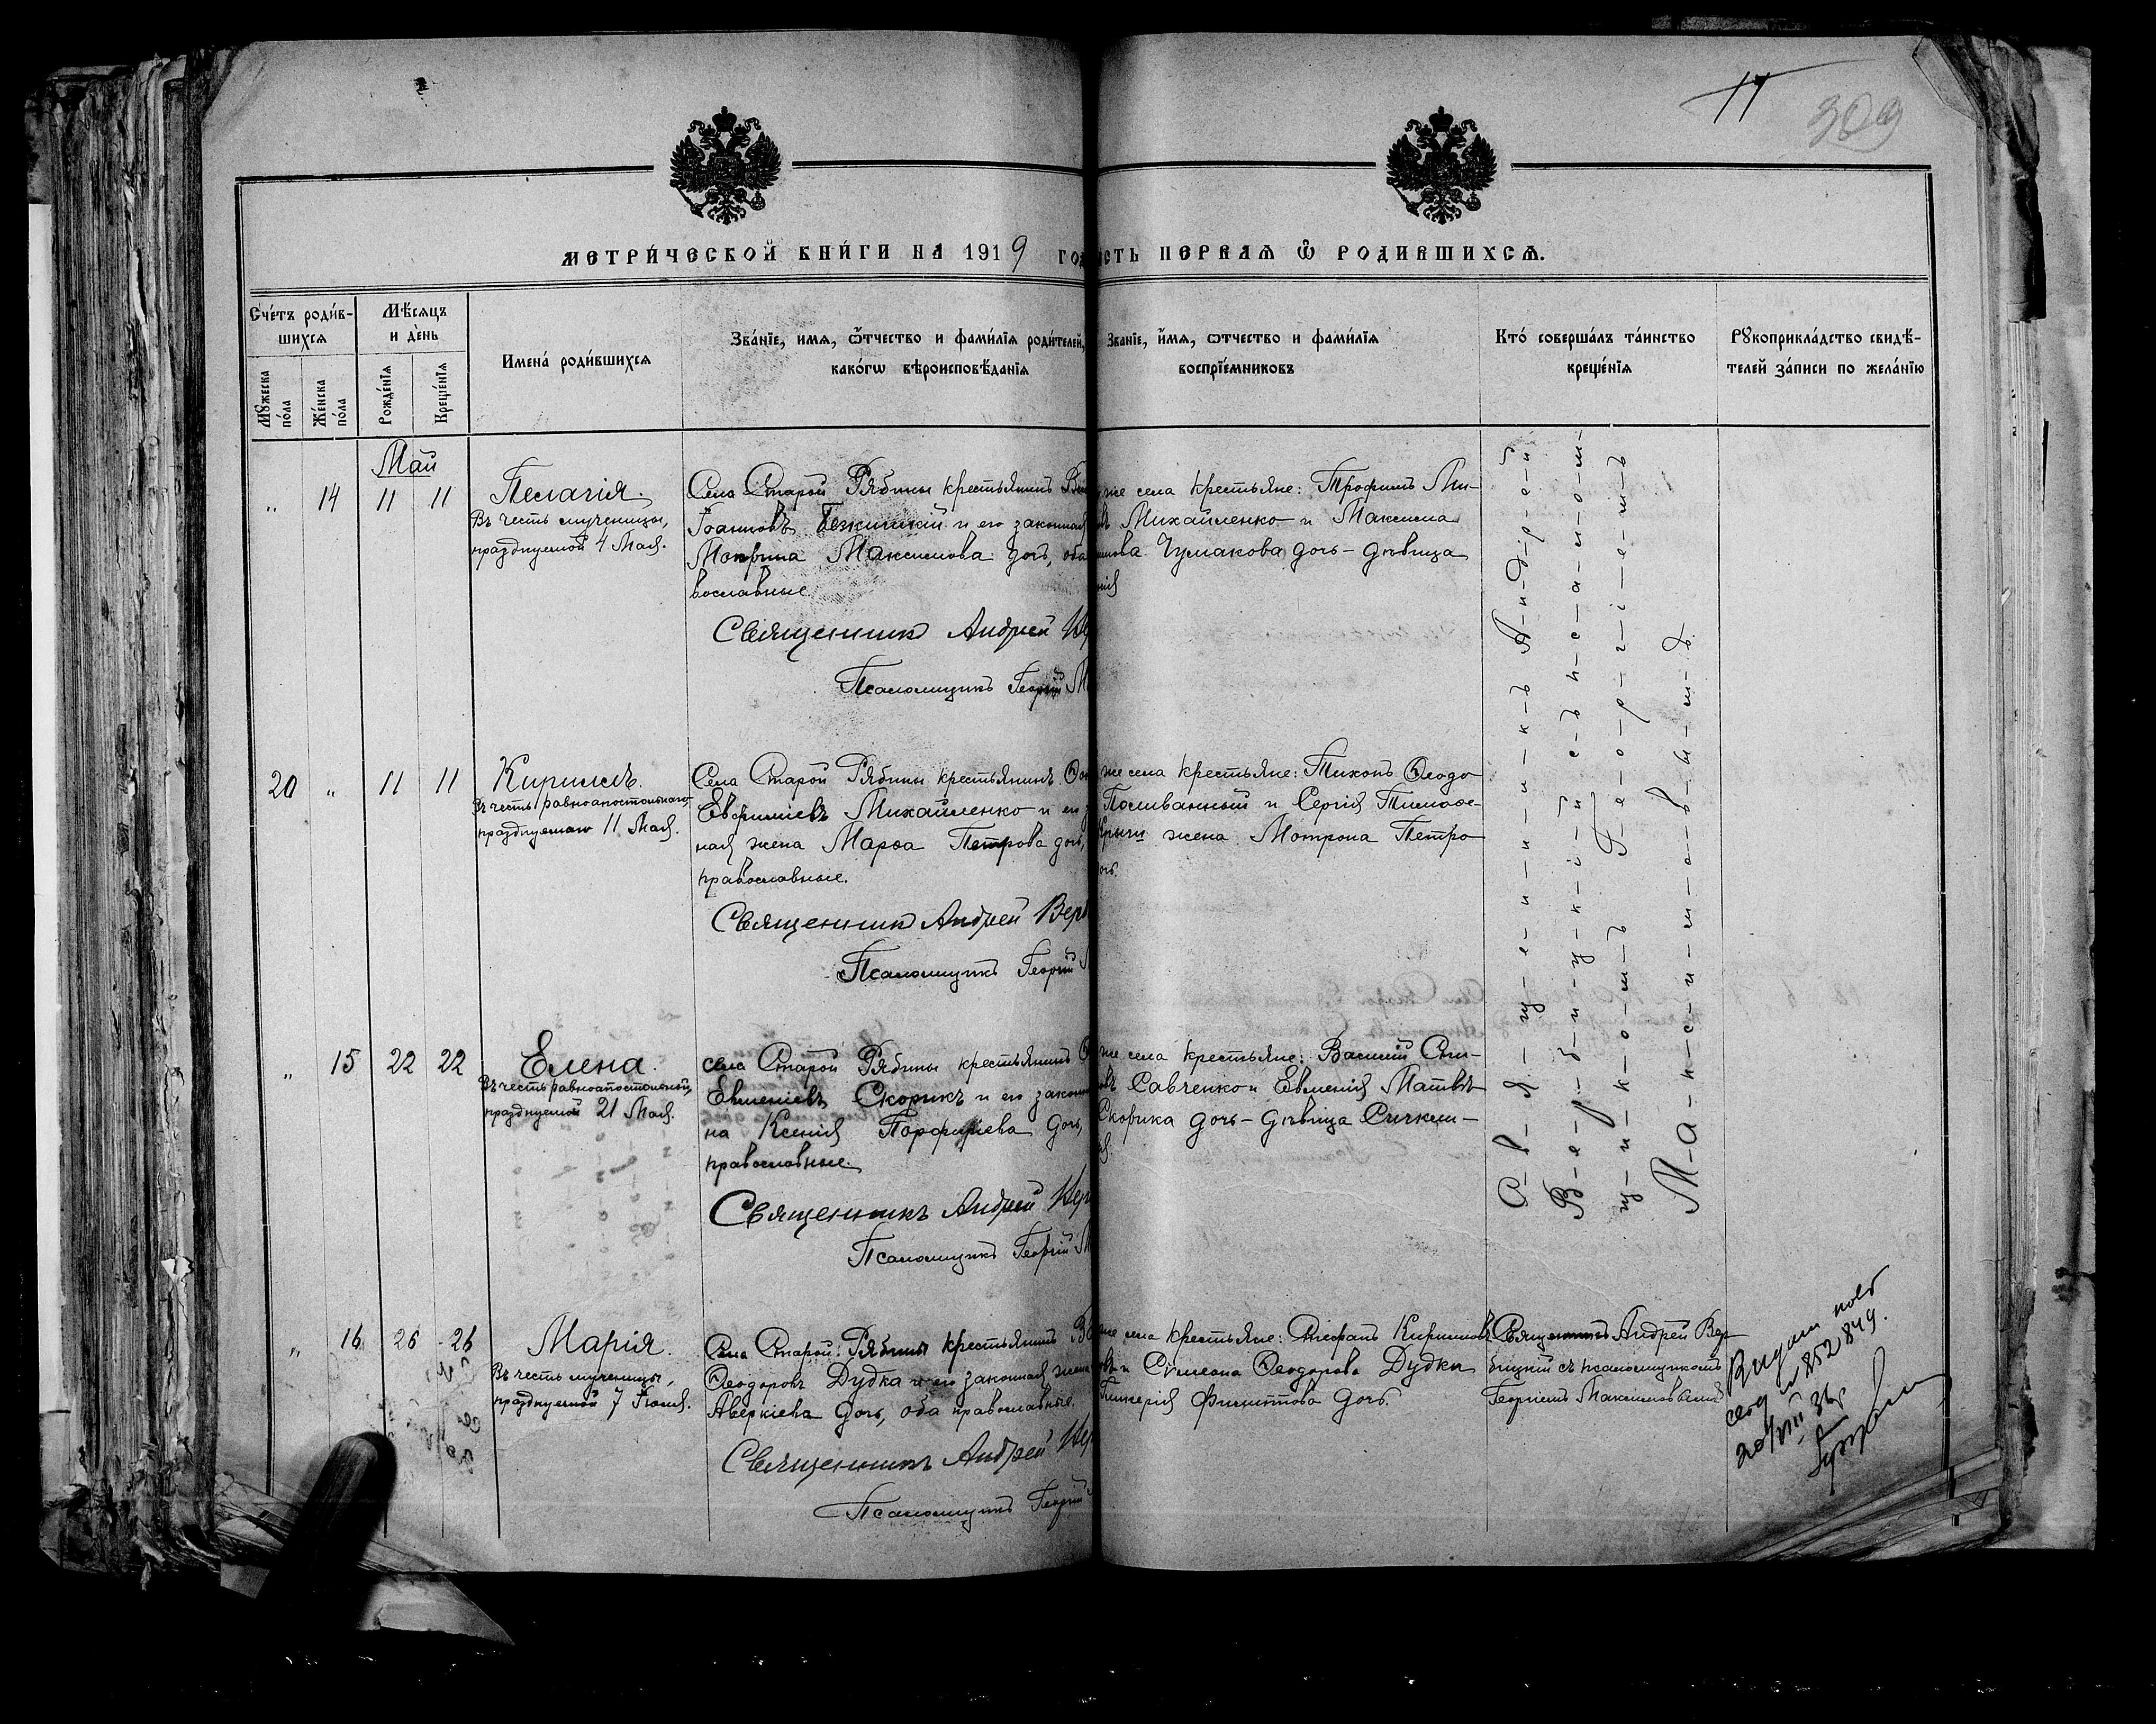 17
309
МЕТРИ́ЧЕСКОЙ КНИ́ГИ НА 1919 ГО
СТЬ ПЕРВАѦ Ѿ РОДИВШИХСѦ.
Сче́тъ роди́в-
шихсѧ
Мꙋ́жеска по́ла
Же́нска по́ла
Мѣ́сѧцъ
и де́нь
Рожде́нїѧ
Креще́нїѧ
Имена́ роди́вшихсѧ
Зва́нїе, имѧ, ѻ҆́тчество и фами́лїѧ роди́телей,
како́гѡ вѣроисповѣ́данїѧ
Званїе, и҆́мѧ, ѻтчество и фами́лїѧ
воспрїе́мниковъ
Кто́ соверша́лъ та́инство
креще́нїѧ
Рꙋкоприкла́дство свидѣ́-
телей за́писи по жела́нїю
Май
„ 14 11 11
Пелагія.
Въ честь мученицы,
празднуемой 4 Мая.
Села Старой Рябины крестьянинъ
Іоанновъ и его законная
Максимова дочь, оба
вославные
Священник Андрей
Псаломщикъ Георгій
же села крестьяне: Трофимъ
Михайленко и
Чумакова дочь – дѣвица
20 „ 11 11
Кириллъ.
Въ честь равноапостольнаго
празднуемаго 11 Мая.
Села Старой Рябины крестьянинъ
Евфиміевъ Михайленко и его
ная жена Марѳа Петрова дочь,
православные.
Священник Андрей Вер
Псаломщикъ Георгій
же села крестьяне: Тихонъ Ѳеодо
Поливанный и Сергія Тимоѳе-
жена Мотрона Петро
очь.
„ 15 22 22
Елена.
Въ честь равноапостольной,
празднуемой 21 Мая.
села Старой Рябины крестьянинъ
Евменіевъ Скорикъ и его законн
на Ксенія Порфиріева дочь,
православные.
Священникъ Андрей
Псаломщикъ Георгій М
же села крестьяне: Василій
Савченко и Евменія Матвѣ
Скорика дочь – дѣвица
С-в-я-щ-е-н-н-и-к-ъ А-н-д-р-е-й
В-е-р-б-и-ц-к-і-й с-ъ п-с-а-л-о-м-
щ-и-к-о-м-ъ Г-е-о-р-г-і-е-м-ъ
М-а-к-с-и-м-о-в-ы-м-ъ.
„ 16 26 26
Марія.
Въ честь мученицы,
празднуемой 7 Іюня.
Села Старой Рябины крестьянинъ
Ѳеодоровъ Дудка и его законная жена
Аверкіева дочь, оба православные.
Священникъ Андрей
Псаломщикъ Георгій
же села крестьяне: Стефанъ Кирилловъ
Сѵмеона Ѳеодорова Дудки
Гликерія Филиппова дочь.
Священникъ Андрей Вер
бицкій съ псаломщикомъ
Георгіемъ Максимовымъ
Видан
852849.
20/VIII 36г